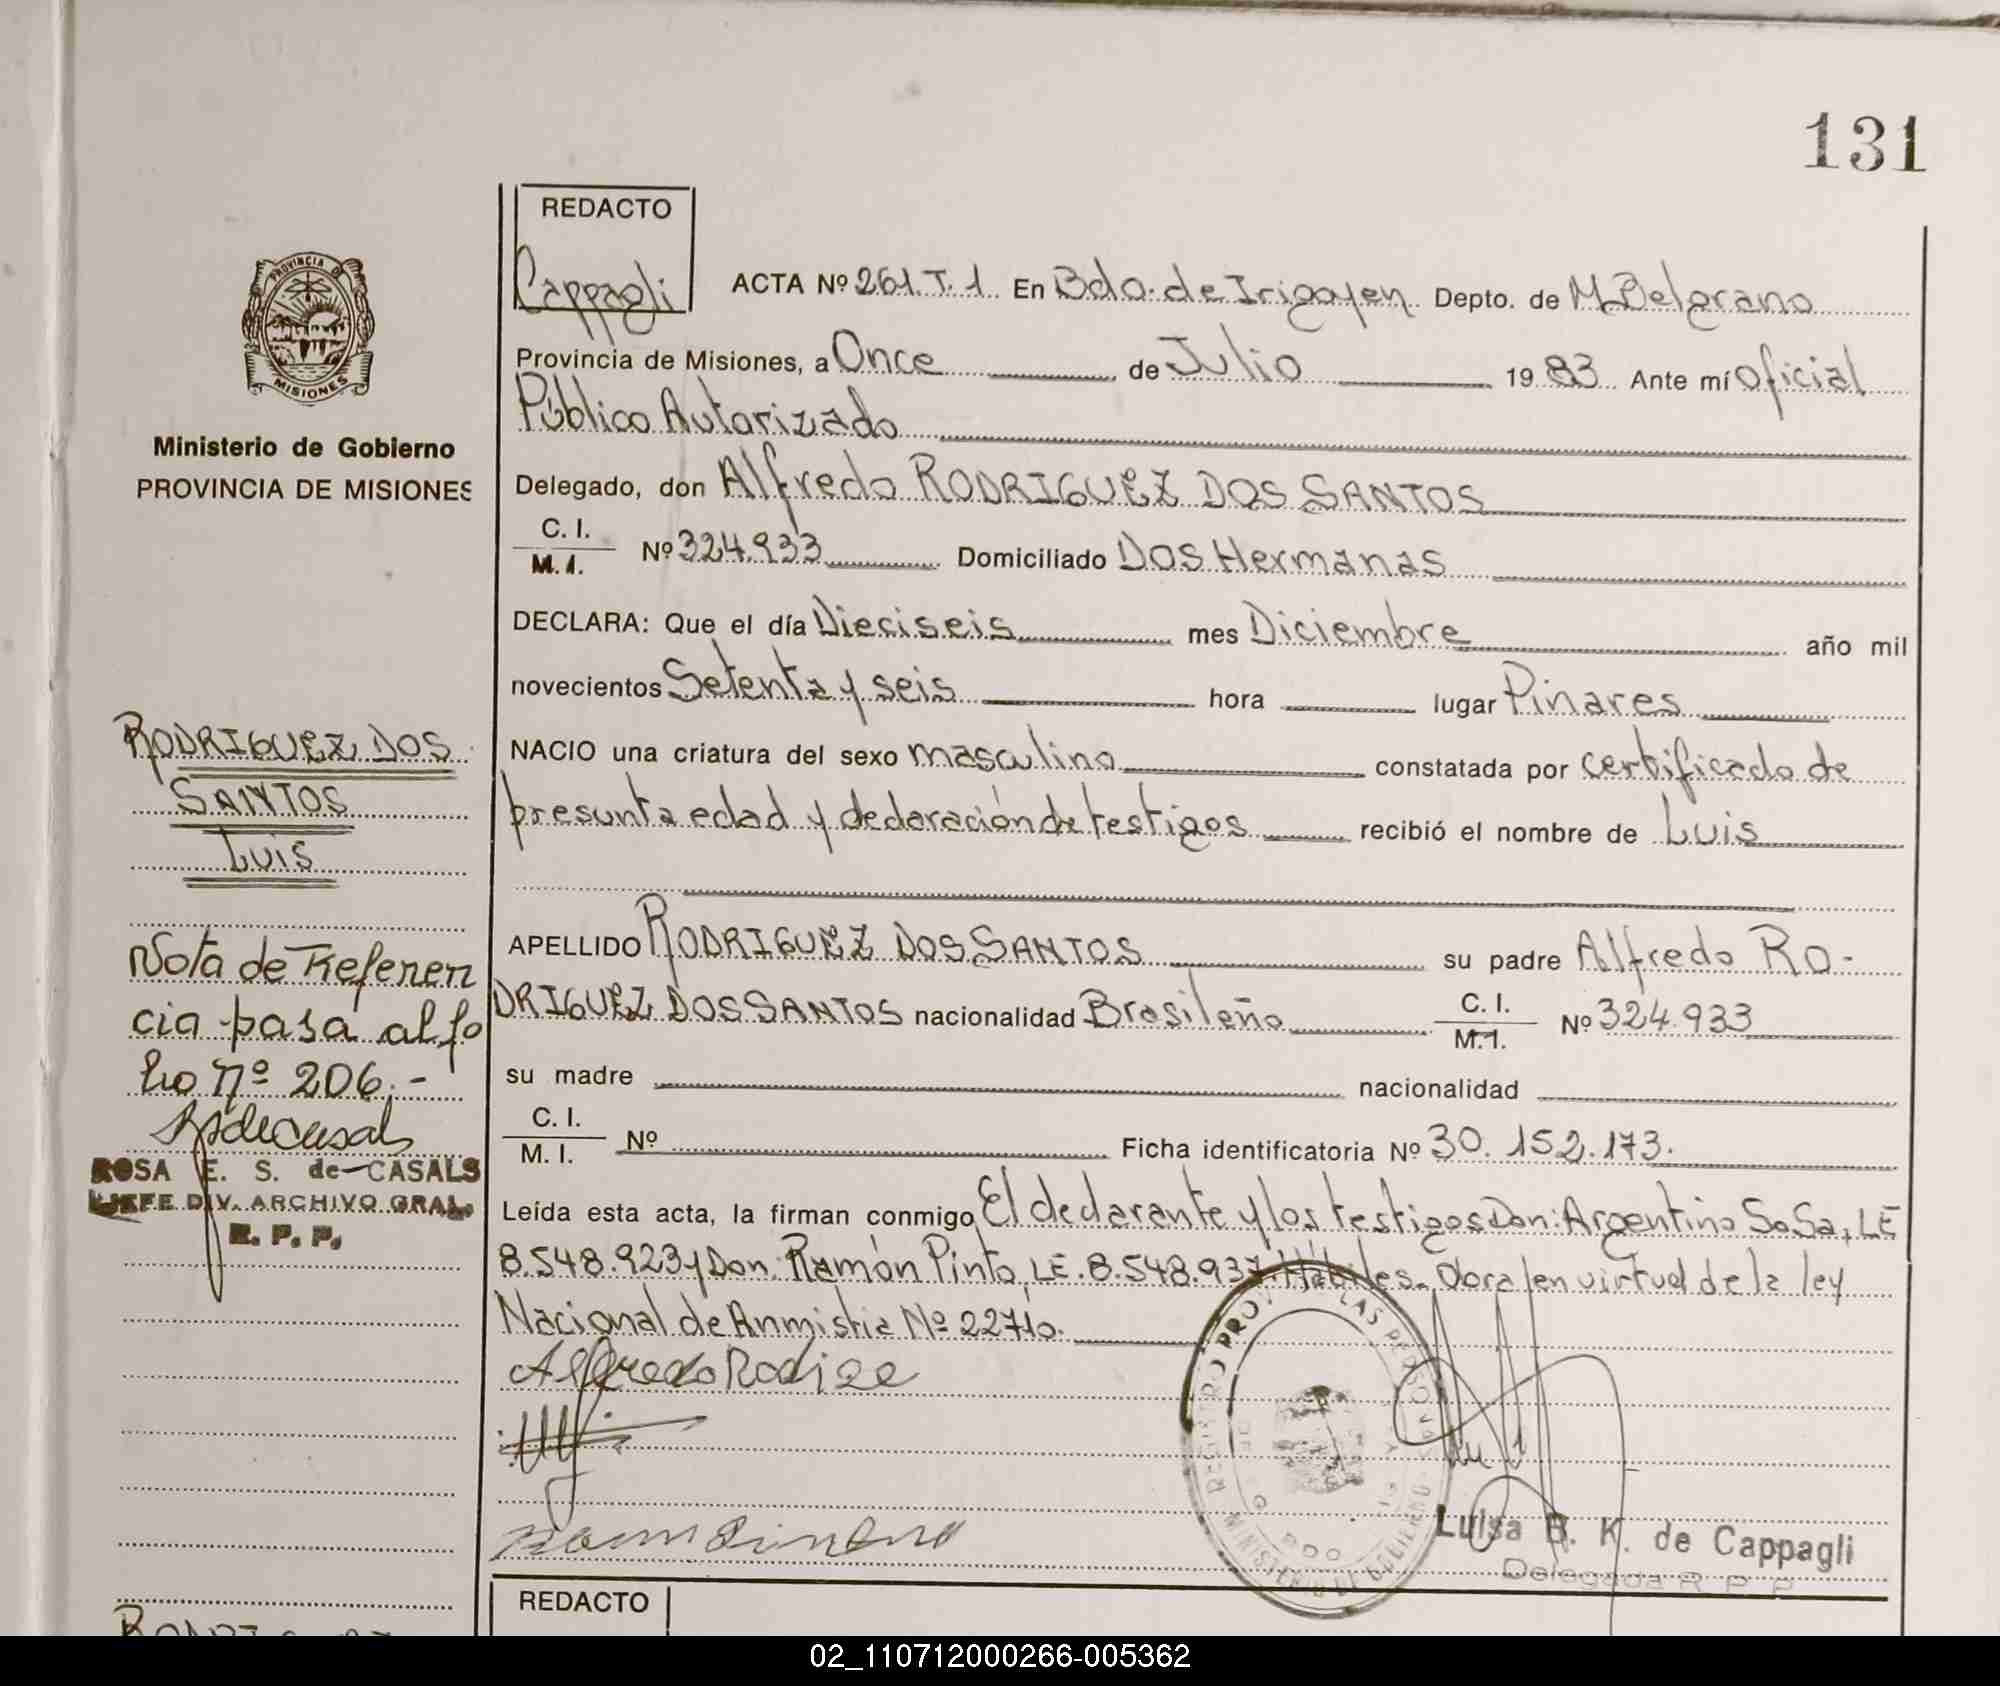 131
REDACTO
Cappagli
ACTA Nº 261.T.1 En Bdo. de Irigoyen Depto. de M. Belgrano
Provincia de Misiones, a Once de Julio 1983 Ante mí oficial
Público Autorizado
Delegado, don Alfredo RODRIGUEZ DOS SANTOS
C. I.
M. I. Nº 324.933 Domiciliado Dos Hermanas
DECLARA: Que el día Dieciseis mes Diciembre año mil
novecientos Setenta y seis hora lugar Pinares
NACIO una criatura del sexo masculino constatada por certificado de
presunta edad y declaración de testigos recibió el nombre de Luis
APELLIDO RODRIGUEZ DOS SANTOS su padre Alfredo RO-
DRIGUEZ DOS SANTOS nacionalidad Brasileña C. I.
M. I. Nº 324.933
su madre nacionalidad
C. I.
M. I. Nº Ficha identificatoria Nº 30.152.173.
Leída esta acta, la firman conmigo El declarante y los testigos Don: Argentino Sosa, LE
8.548.923 y Don: Ramón Pinto, LE. 8.548.937. Hábiles. Obra/en virtud de la ley
Nacional de Anmistia Nº 22710.
Alfredo Rodige
Luisa B. K. de Cappagli
Delegada R P P
REDACTO
PROVINCIA DE
MISIONES
Ministerio de Gobierno
PROVINCIA DE MISIONES
RODRIGUEZ DOS
SANTOS
Luis
Nota de Referen
cia pasa al fo
lio Nº 206.-
ROSA E. S. de CASALS
JEFE DIV. ARCHIVO GRAL.
R. P. P.
02_110712000266-005362